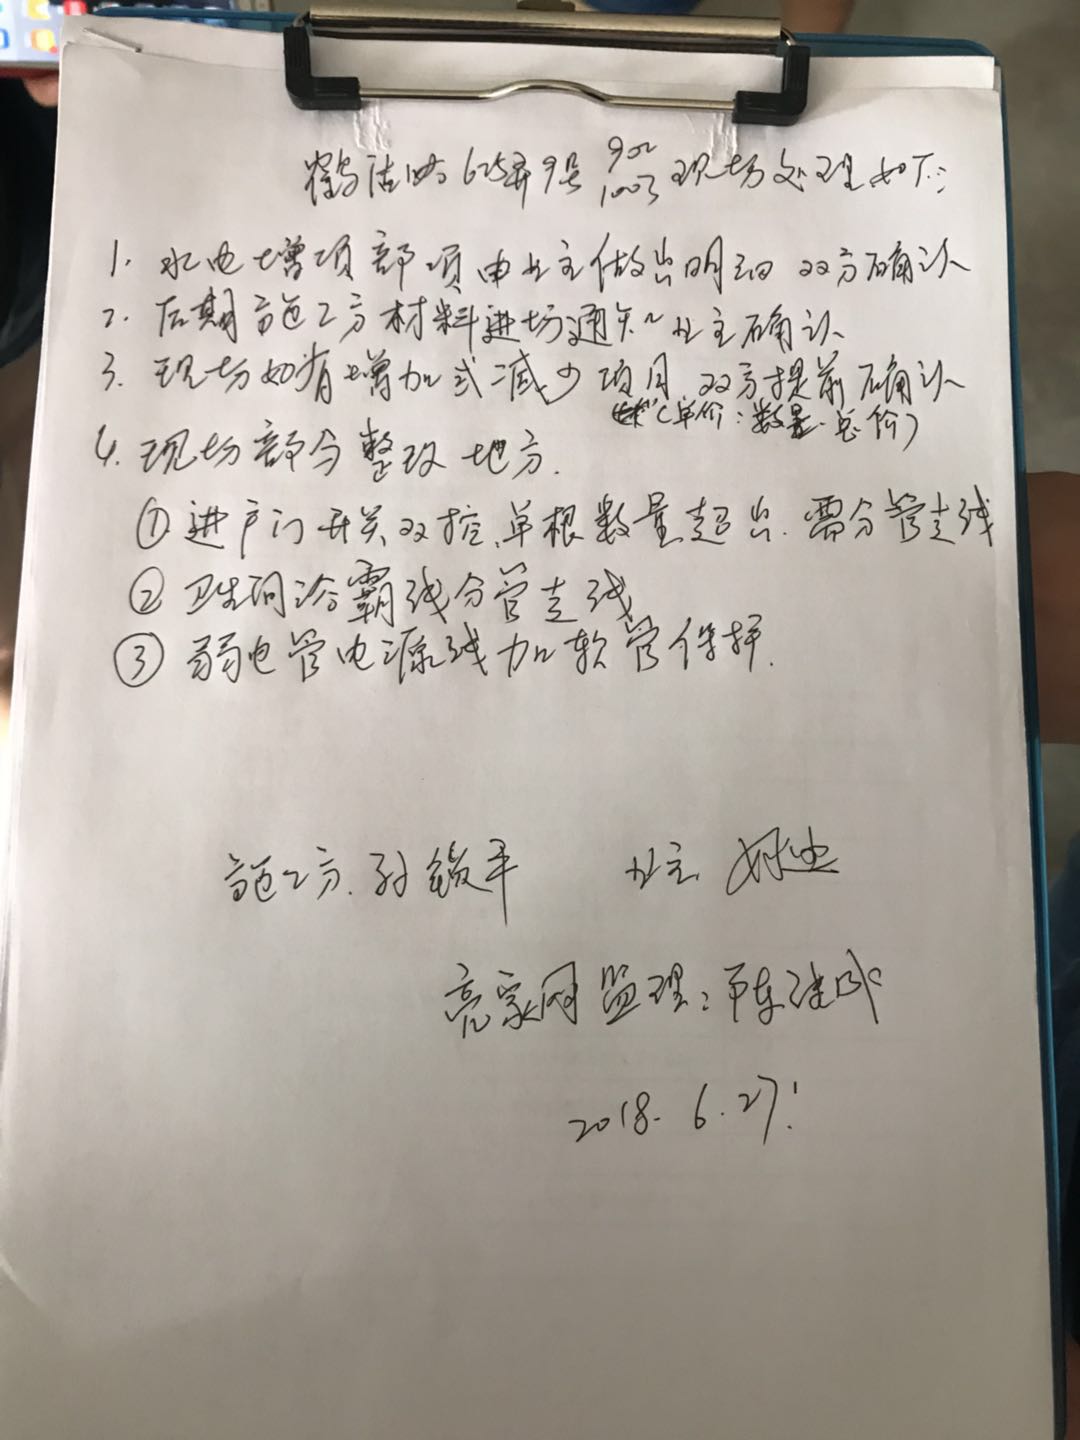 鹤洁路625弄9号 902 1003 现场处理如下:
1. 水电增项部项由业主做出明细 双方确认
2. 后期施工方材料进场通知业主确认
3. 现场如有增加或减少项目 双方提前确认
(单价:数量.总价)
4. 现场部分整改地方.
① 进户门开关双控,单根数量超出.需分管走线
② 卫生间浴霸线分管走线
③ 弱电管电源线加软管保护.
施工方.孙 平 业主
亮家网监理:陈建
2018. 6. 27!